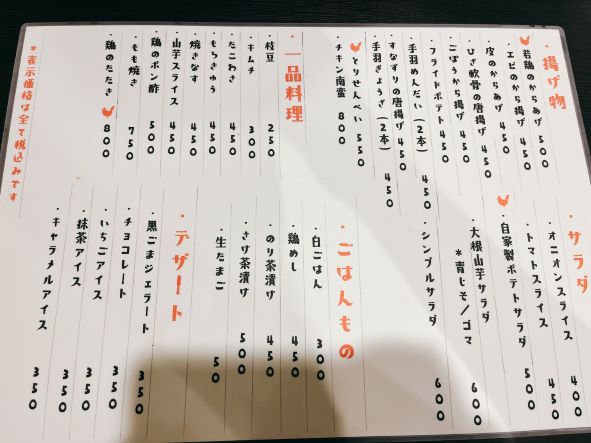 ・揚げ物
若鶏のからあげ 500
エビのから揚げ 450
皮のからあげ 450
ひざ軟骨の唐揚げ 450
ごぼうから揚げ 450
フライドポテト 450
手羽めんたい(2本) 450
すなずりの唐揚げ 450
手羽ぎょうざ(2本) 450
とりせんべい 550
チキン南蛮 800
・一品料理
枝豆 250
キムチ 300
たこわさ 450
もろきゅう 450
焼きなす 450
山芋スライス 450
鶏のポン酢 500
もも焼き 750
鶏のたたき 800
*表示価格は全て税込みです
・サラダ
・オニオンスライス 400
・トマトスライス 450
・自家製ポテトサラダ 500
・大根山芋サラダ 600
*青じそ/ゴマ
・シンプルサラダ 600
・ごはんもの
・白ごはん 300
・鶏めし 450
・のり茶漬け 450
・さけ茶漬け 500
・生たまご 50
・デザート
・黒ごまジェラート 350
・チョコレート 350
・いちごアイス 350
・抹茶アイス 350
・キャラメルアイス 350